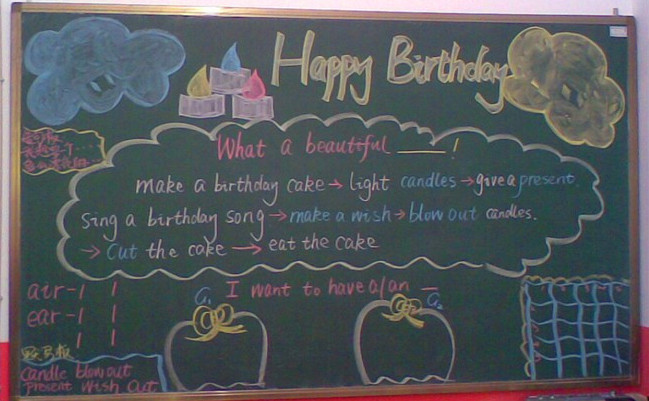 Happy Birthday
What a beautiful ____!
make a birthday cake → light candles → give a present.
Sing a birthday song → make a wish → blow out candles.
→ Cut the cake → eat the cake
I want to have a/an __
air-
ear-
G₁
G₂
Candle blow out
Present wish Cut